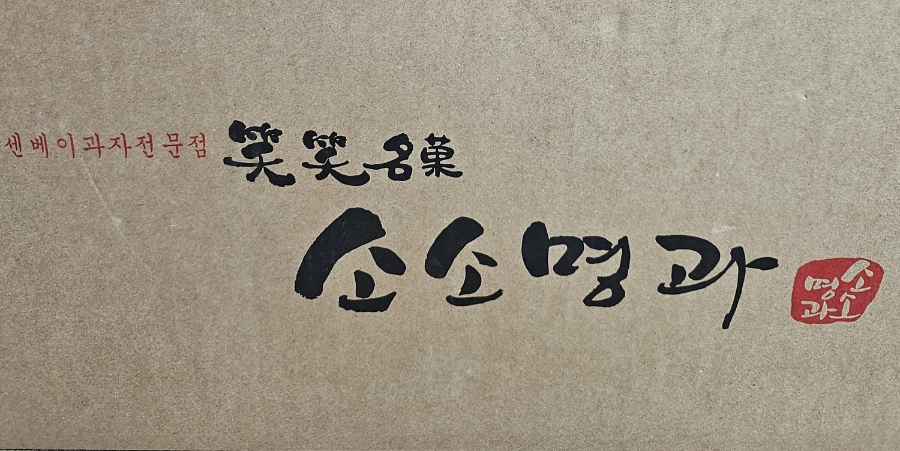 센베이과자전문점 笑笑名菓
소소명과
소소
명과